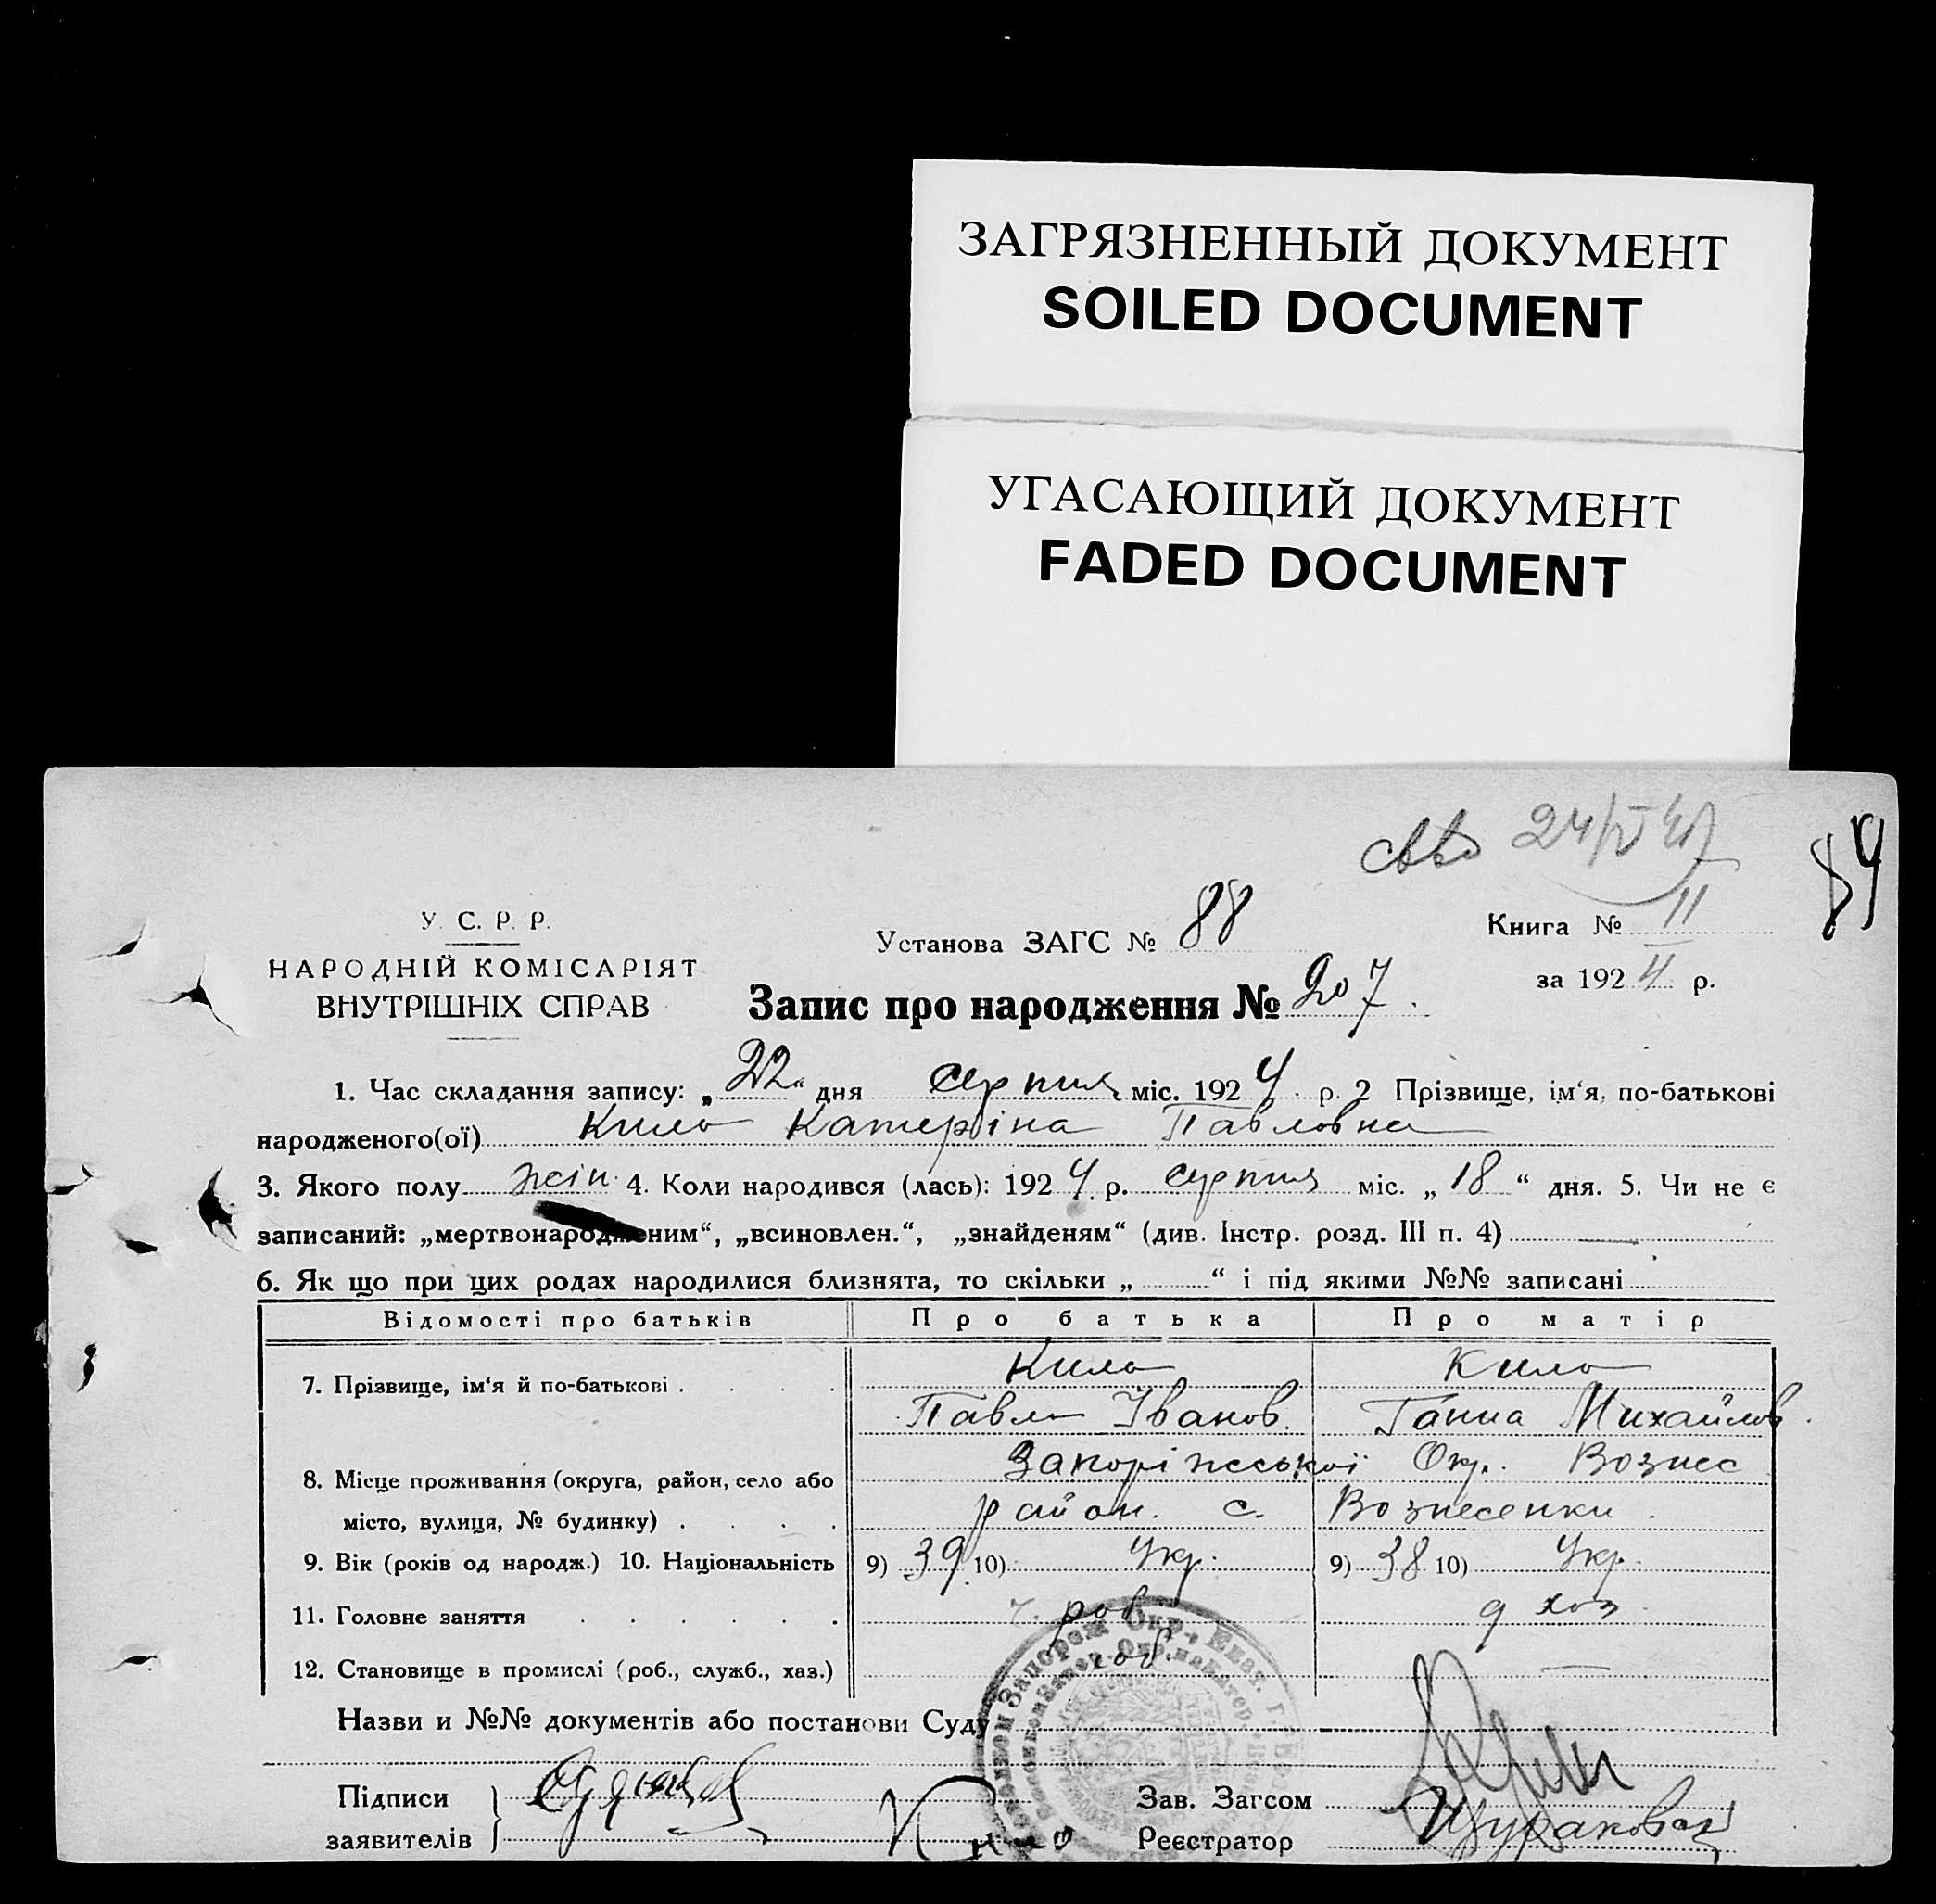 ЗАГРЯЗНЕННЫЙ ДОКУМЕНТ
SOILED DOCUMENT
УГАСАЮЩИЙ ДОКУМЕНТ
FADED DOCUMENT
84
У. С. Р. Р.
НАРОДНІЙ КОМІСАРІЯТ
ВНУТРІШНІХ СПРАВ
Установа ЗАГС № 88
Книга № II
за 1924 р.
Запис про народження № 207.
1. Час складання запису: „22“ дня серпня міс. 1924 р. 2 Прізвище, ім‘я, по-батькові
народженого(ої) Кило Катеріна Павловна
3. Якого полу жін. 4. Коли народився (лась): 1924 р. серпня міс. „18“ дня. 5. Чи не є
записаний: „мертвонародженим“, „всиновлен.“, „знайденям“ (див. Інстр. розд. III п. 4)
6. Як що при цих родах народилися близнята, то скільки „ “ і під якими №№ записані
Відомості про батьків Про батька Про матір
7. Прізвище, ім‘я й по-батькові Кило Кило
Павло Іванов. Ганна Михайлов.
8. Місце проживання (округа, район, село або Запоріжської Окр. Вознес
місто, вулиця, № будинку) район. с. Вознесенки.
9. Вік (років од народж.) 10. Національність 9) 39 10) Укр. 9) 38 10) Укр.
11. Головне заняття роб. д хоз
12. Становище в промислі (роб., служб., хаз.)
Назви и №№ документів або постанови Суду
Підписи
заявителів
Кило
Зав. Загсом
Реєстратор